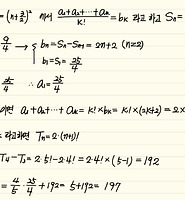 = (n+3/2)² 에서 (a₁+a₂+⋯+aₖ)/k! = bₖ 라고 하고 Sₙ =
9/4 → { bₙ = Sₙ - Sₙ₋₁ = 2n+2 (n≥2)
b₁ = S₁ = 25/4
25/4 ∴ a₁ = 25/4
이면 a₁+a₂+⋯+aₖ = k! × bₖ = k! × (2k+2) = 2×
라고하면 Tₙ = 2·(n+1)!
T₄ - T₃ = 2·5! - 2·4! = 2·4! × (5-1) = 192
= 4/5 · 25/4 + 192 = 5 + 192 = 197